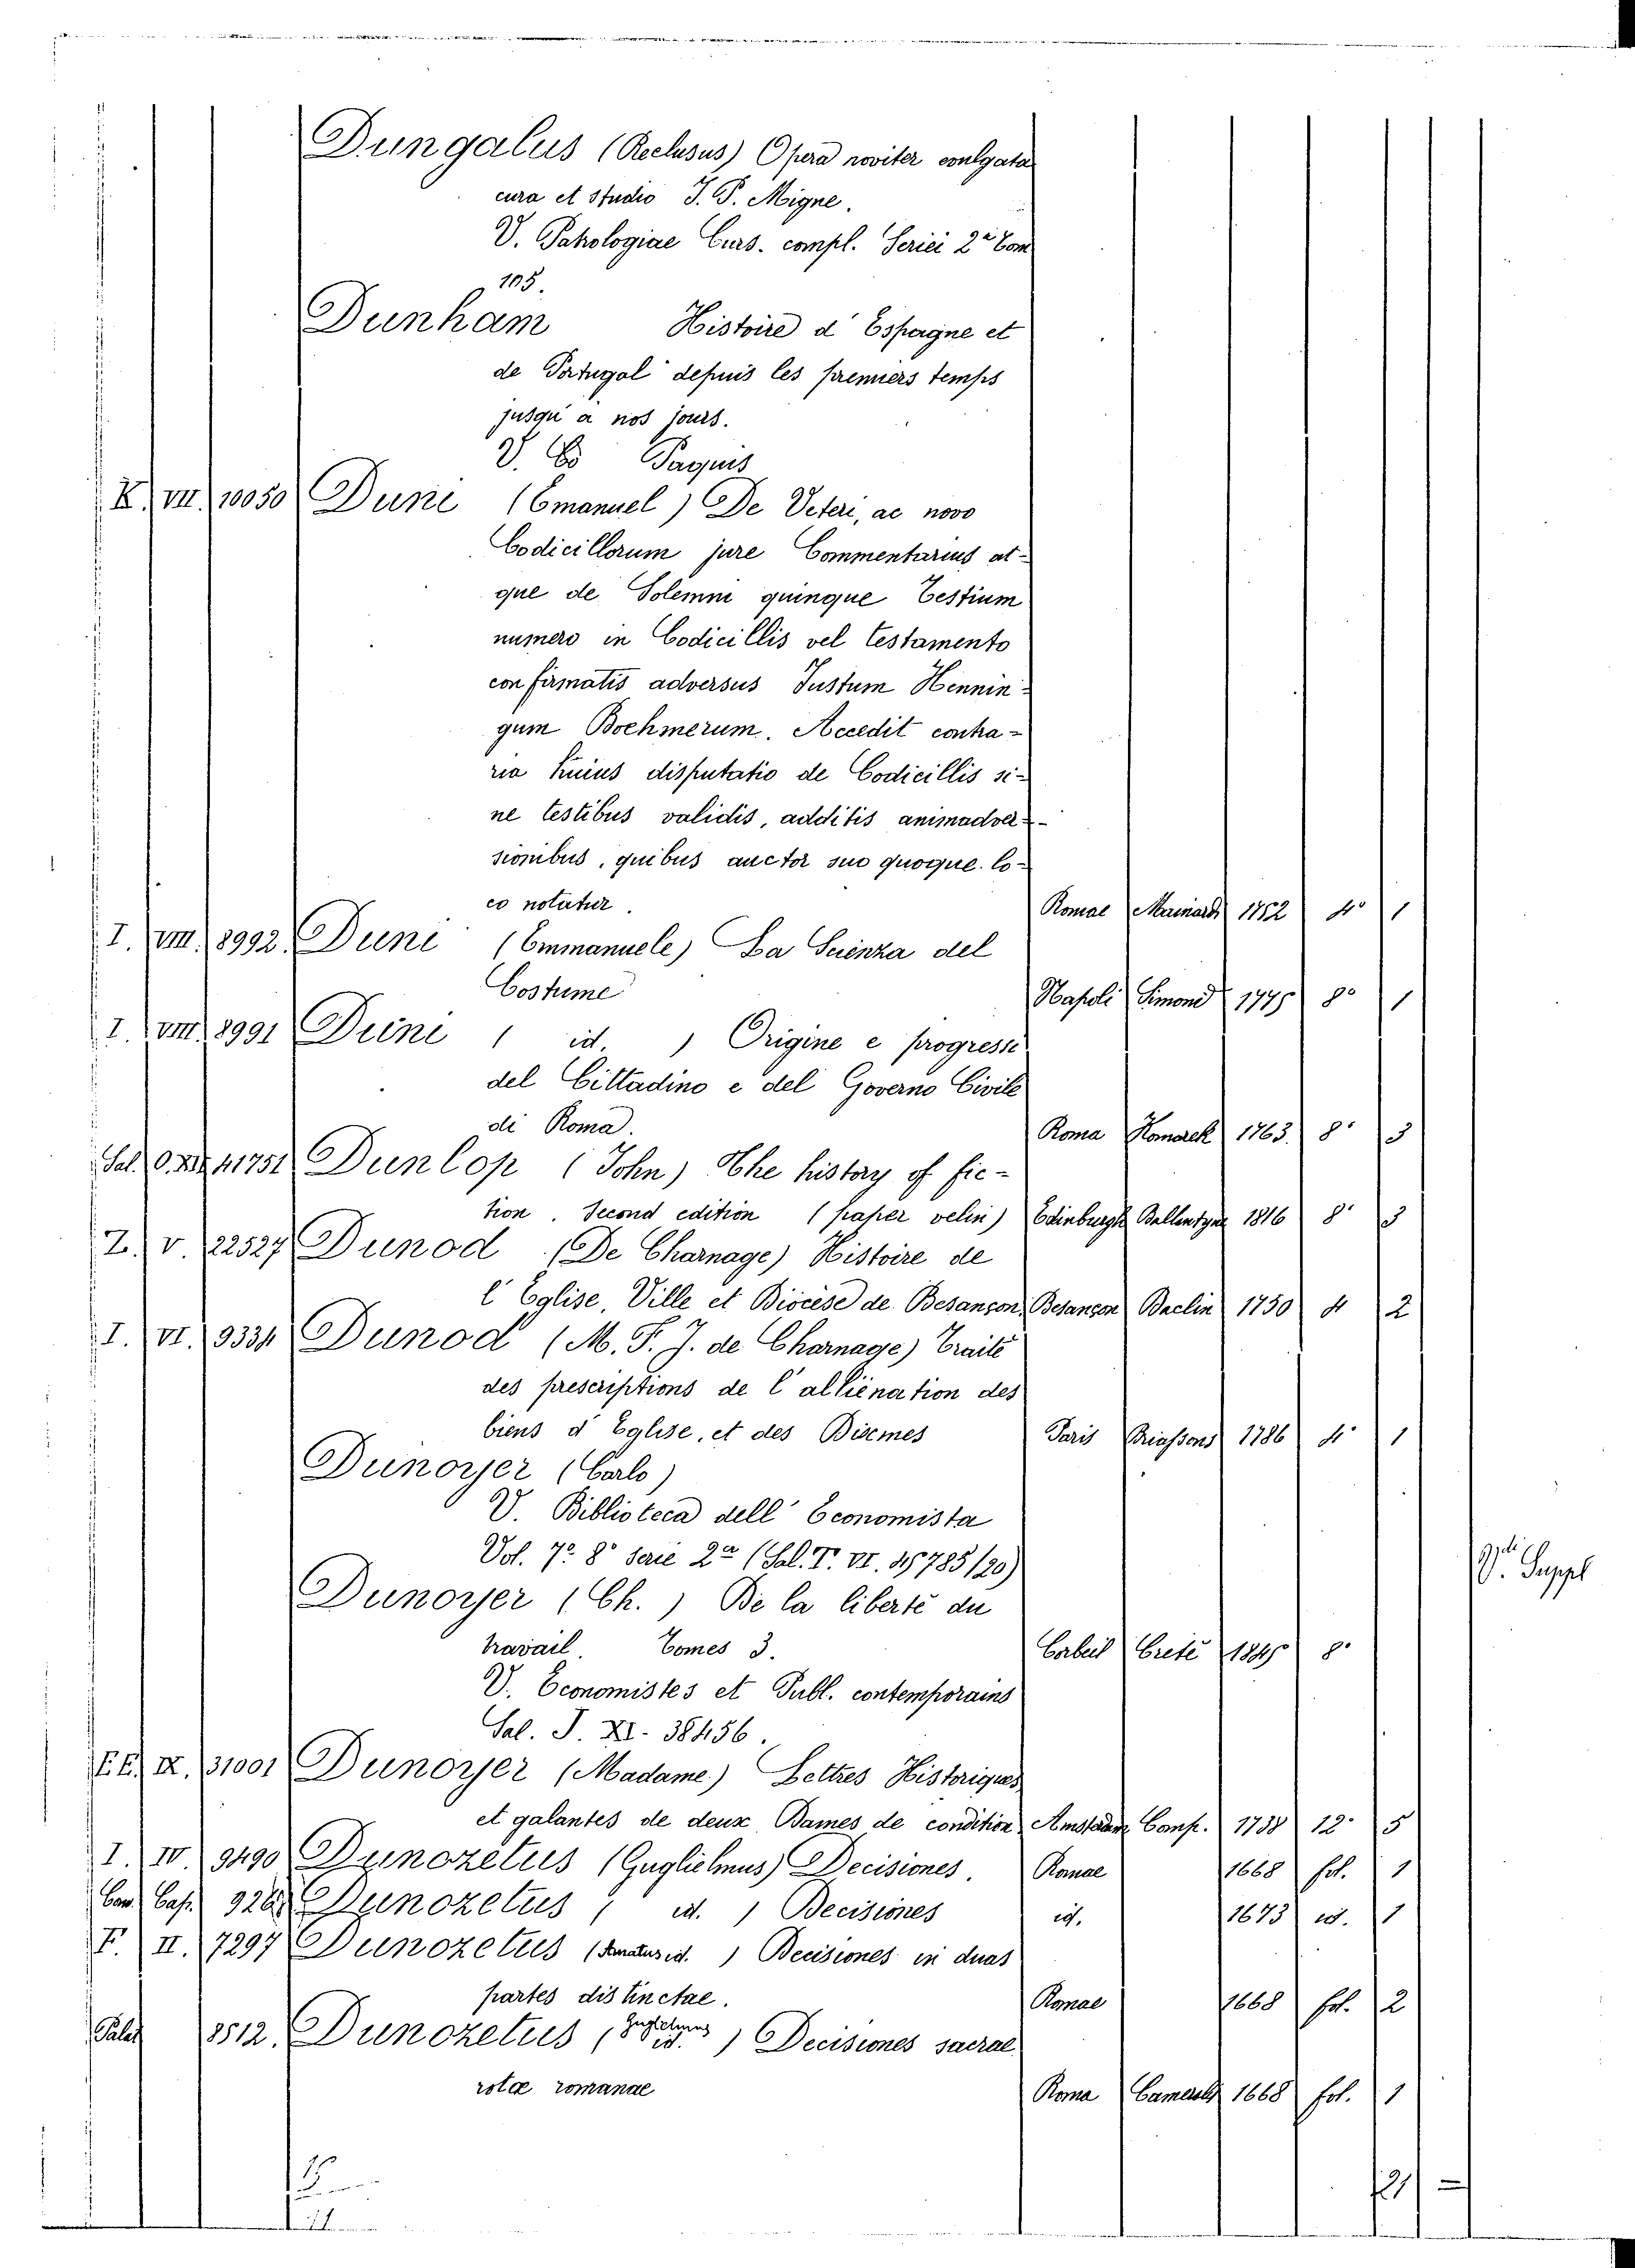 Dungalus (Reclusus) Opera noviter evulgata
cura et studio J. P. Migne.
V. Patrologiae Curs. compl. Seriei 2ª Tom
105.
Dunham Histoire d'Espagne et
de Portugal depuis les premiers temps
jusqu'à nos jours.
V. Paquis
X. VII. 10050 Duni (Emanuel) De Veteri, ac novo
Codicillorum jure Commentarius at-
que de Solemni quinque Testium
numero in Codicillis vel testamento
confirmatis adversus Justum Hennin-
gum Boehmerum. Accedit contra-
ria huius disputatio de Codicillis si-
ne testibus validis, additis animadver-
sionibus, quibus auctor suo quoque lo-
co notatur. Romae Mainardi 1752 4° 1
I. VIII. 8992. Duni (Emmanuele) La Scienza del
Costume Napoli Simoni 1775 8° 1
I. VIII. 8991 Duni ( id. ) Origine e progressi
del Cittadino e del Governo Civile
di Roma. Roma Komarek 1763. 8° 3
Sal. O. XII. 41751 Dunlop (John) The history of fic-
tion. Second edition (paper velin) Edinburgh Ballentyne 1816 8° 3
Z. V. 22527 Dunod (De Charnage) Histoire de
l'Eglise, Ville et Diocèse de Besançon. Besançon Daclin 1750 4 2
I. VI. 9334 Dunod (M. F. J. de Charnage) Traité
des prescriptions de l'alliénation des
biens d'Eglise, et des Dixmes Paris Briassons 1786 4° 1
Dunoyer (Carlo)
V. Biblioteca dell'Economista
Vol. 7° 8° Serie 2ª (Sal. T. VI. 45785/20)
Dunoyer (Ch.) De la liberté du V. Suppl
travail. Tomes 3. Corbeil Creté 1845 8°
V. Economistes et Publ. contemporains
Sal. J. XI. 38456.
EE. IX. 31001 Dunoyer (Madame) Lettres Historiques
et galantes de deux Dames de condition Amsterdam Comp. 1738 12° 5
I. IV 9490 Dunozetus (Guglielmus) Decisiones. Romae 1668 fol. 1
Cam. Cas. 926 Dunozetus ( id. ) Decisiones id. 1673 id. 1
F. II. 7297 Dunozetus ( id. ) Decisiones in duas
partes distinctae. Romae 1668 fol. 2
Palat 8512. Dunozetus (Guglielmus id. ) Decisiones sacrae
rotae romanae Roma Cameral 1668 fol. 1
21 =